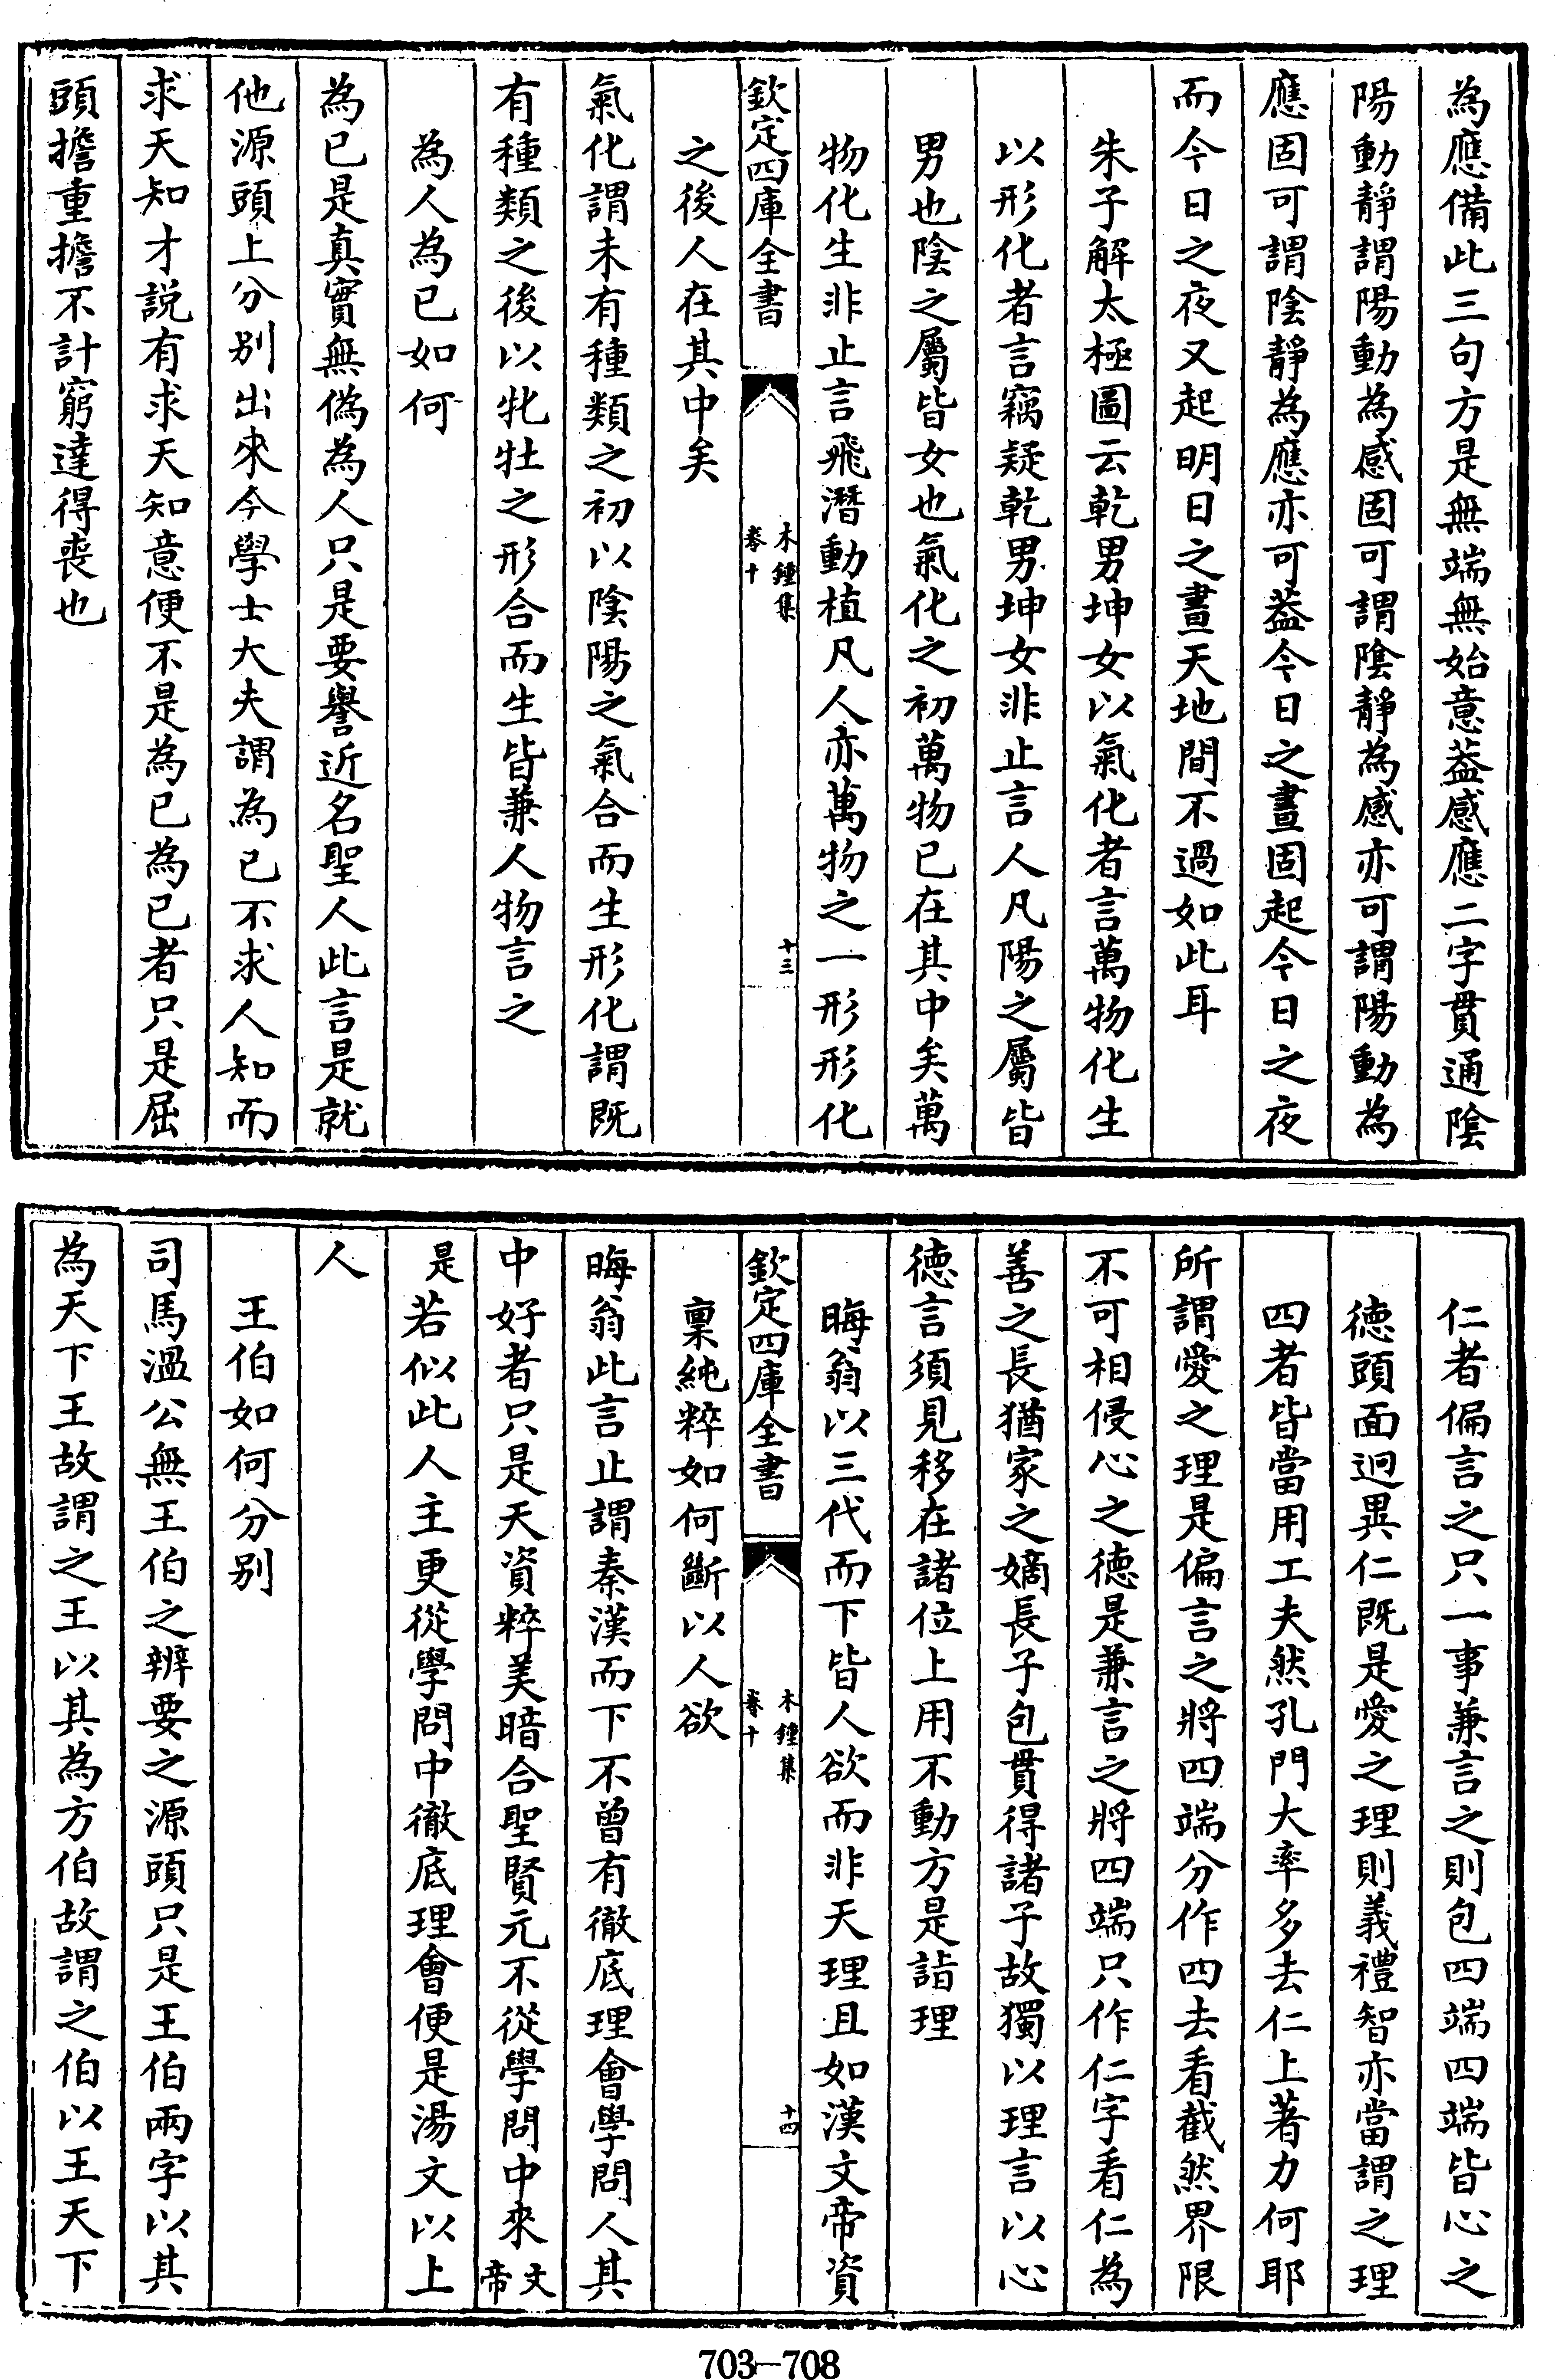 為應備此三句方是無端無始意葢感應二字貫通陰
陽動靜謂陽動為感固可謂陰靜為感亦可謂陽動為
應固可謂陰靜為應亦可葢今日之晝固起今日之夜
而今日之夜又起明日之晝天地間不過如此耳
朱子解太極圖云乾男坤女以氣化者言萬物化生
以形化者言竊疑乾男坤女非止言人凡陽之屬皆
男也陰之屬皆女也氣化之初萬物已在其中矣萬
物化生非止言飛潛動植凡人亦萬物之一形形化
欽定四庫全書
木鍾集
卷十
十三
之後人在其中矣
氣化謂未有種類之初以陰陽之氣合而生形化謂既
有種類之後以牝牡之形合而生皆兼人物言之
為人為已如何
為已是真實無偽為人只是要譽近名聖人此言是就
他源頭上分别出來今學士大夫謂為已不求人知而
求天知才説有求天知意便不是為已為已者只是屈
頭擔重擔不計窮達得喪也
仁者偏言之只一事兼言之則包四端四端皆心之
德頭面迥異仁既是愛之理則義禮智亦當謂之理
四者皆當用工夫然孔門大率多去仁上著力何耶
所謂愛之理是偏言之將四端分作四去看截然界限
不可相侵心之德是兼言之將四端只作仁字看仁為
善之長猶家之嫡長子包貫得諸子故獨以理言以心
德言須見移在諸位上用不動方是詣理
晦翁以三代而下皆人欲而非天理且如漢文帝資
欽定四庫全書
木鍾集
卷十
十四
稟純粹如何斷以人欲
晦翁此言止謂秦漢而下不曾有徹底理會學問人其
中好者只是天資粹美暗合聖賢元不從學問中來文帝
是若似此人主更從學問中徹底理會便是湯文以上
人
王伯如何分别
司馬溫公無王伯之辨要之源頭只是王伯兩字以其
為天下王故謂之王以其為方伯故謂之伯以王天下
703—708